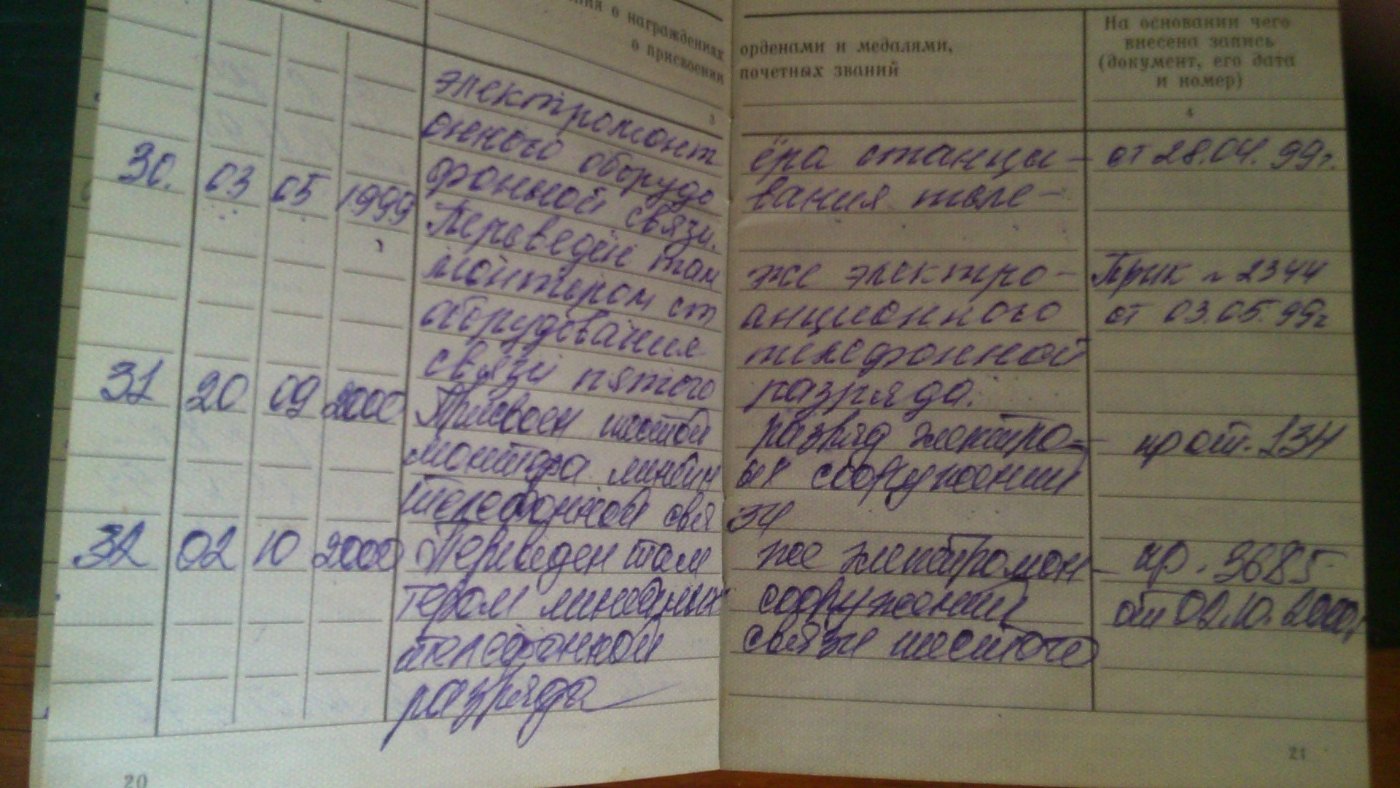 ния о награждениях орденами и медалями,
о присвоении почетных званий
На основании чего
внесена запись
(документ, его дата
и номер)
3 4
электромонтёра станци- от 28.04.99г.
онного оборудования теле-
фонной связи.
30. 03 05 1999 Переведён там же электро- Прик № 2344
монтером станционного от 03.05.99г
оборудования телефонной
связи пятого разряда.
31 20 09 2000 Присвоен шестой разряд электро- прот. 134
монтёра линейных сооружений
телефонной связи
32 02 10 2000 Переведен там же электромон- пр. 3685
тером линейных сооружений от 02.10.2000г
телефонной связи шестого
разряда
20 21